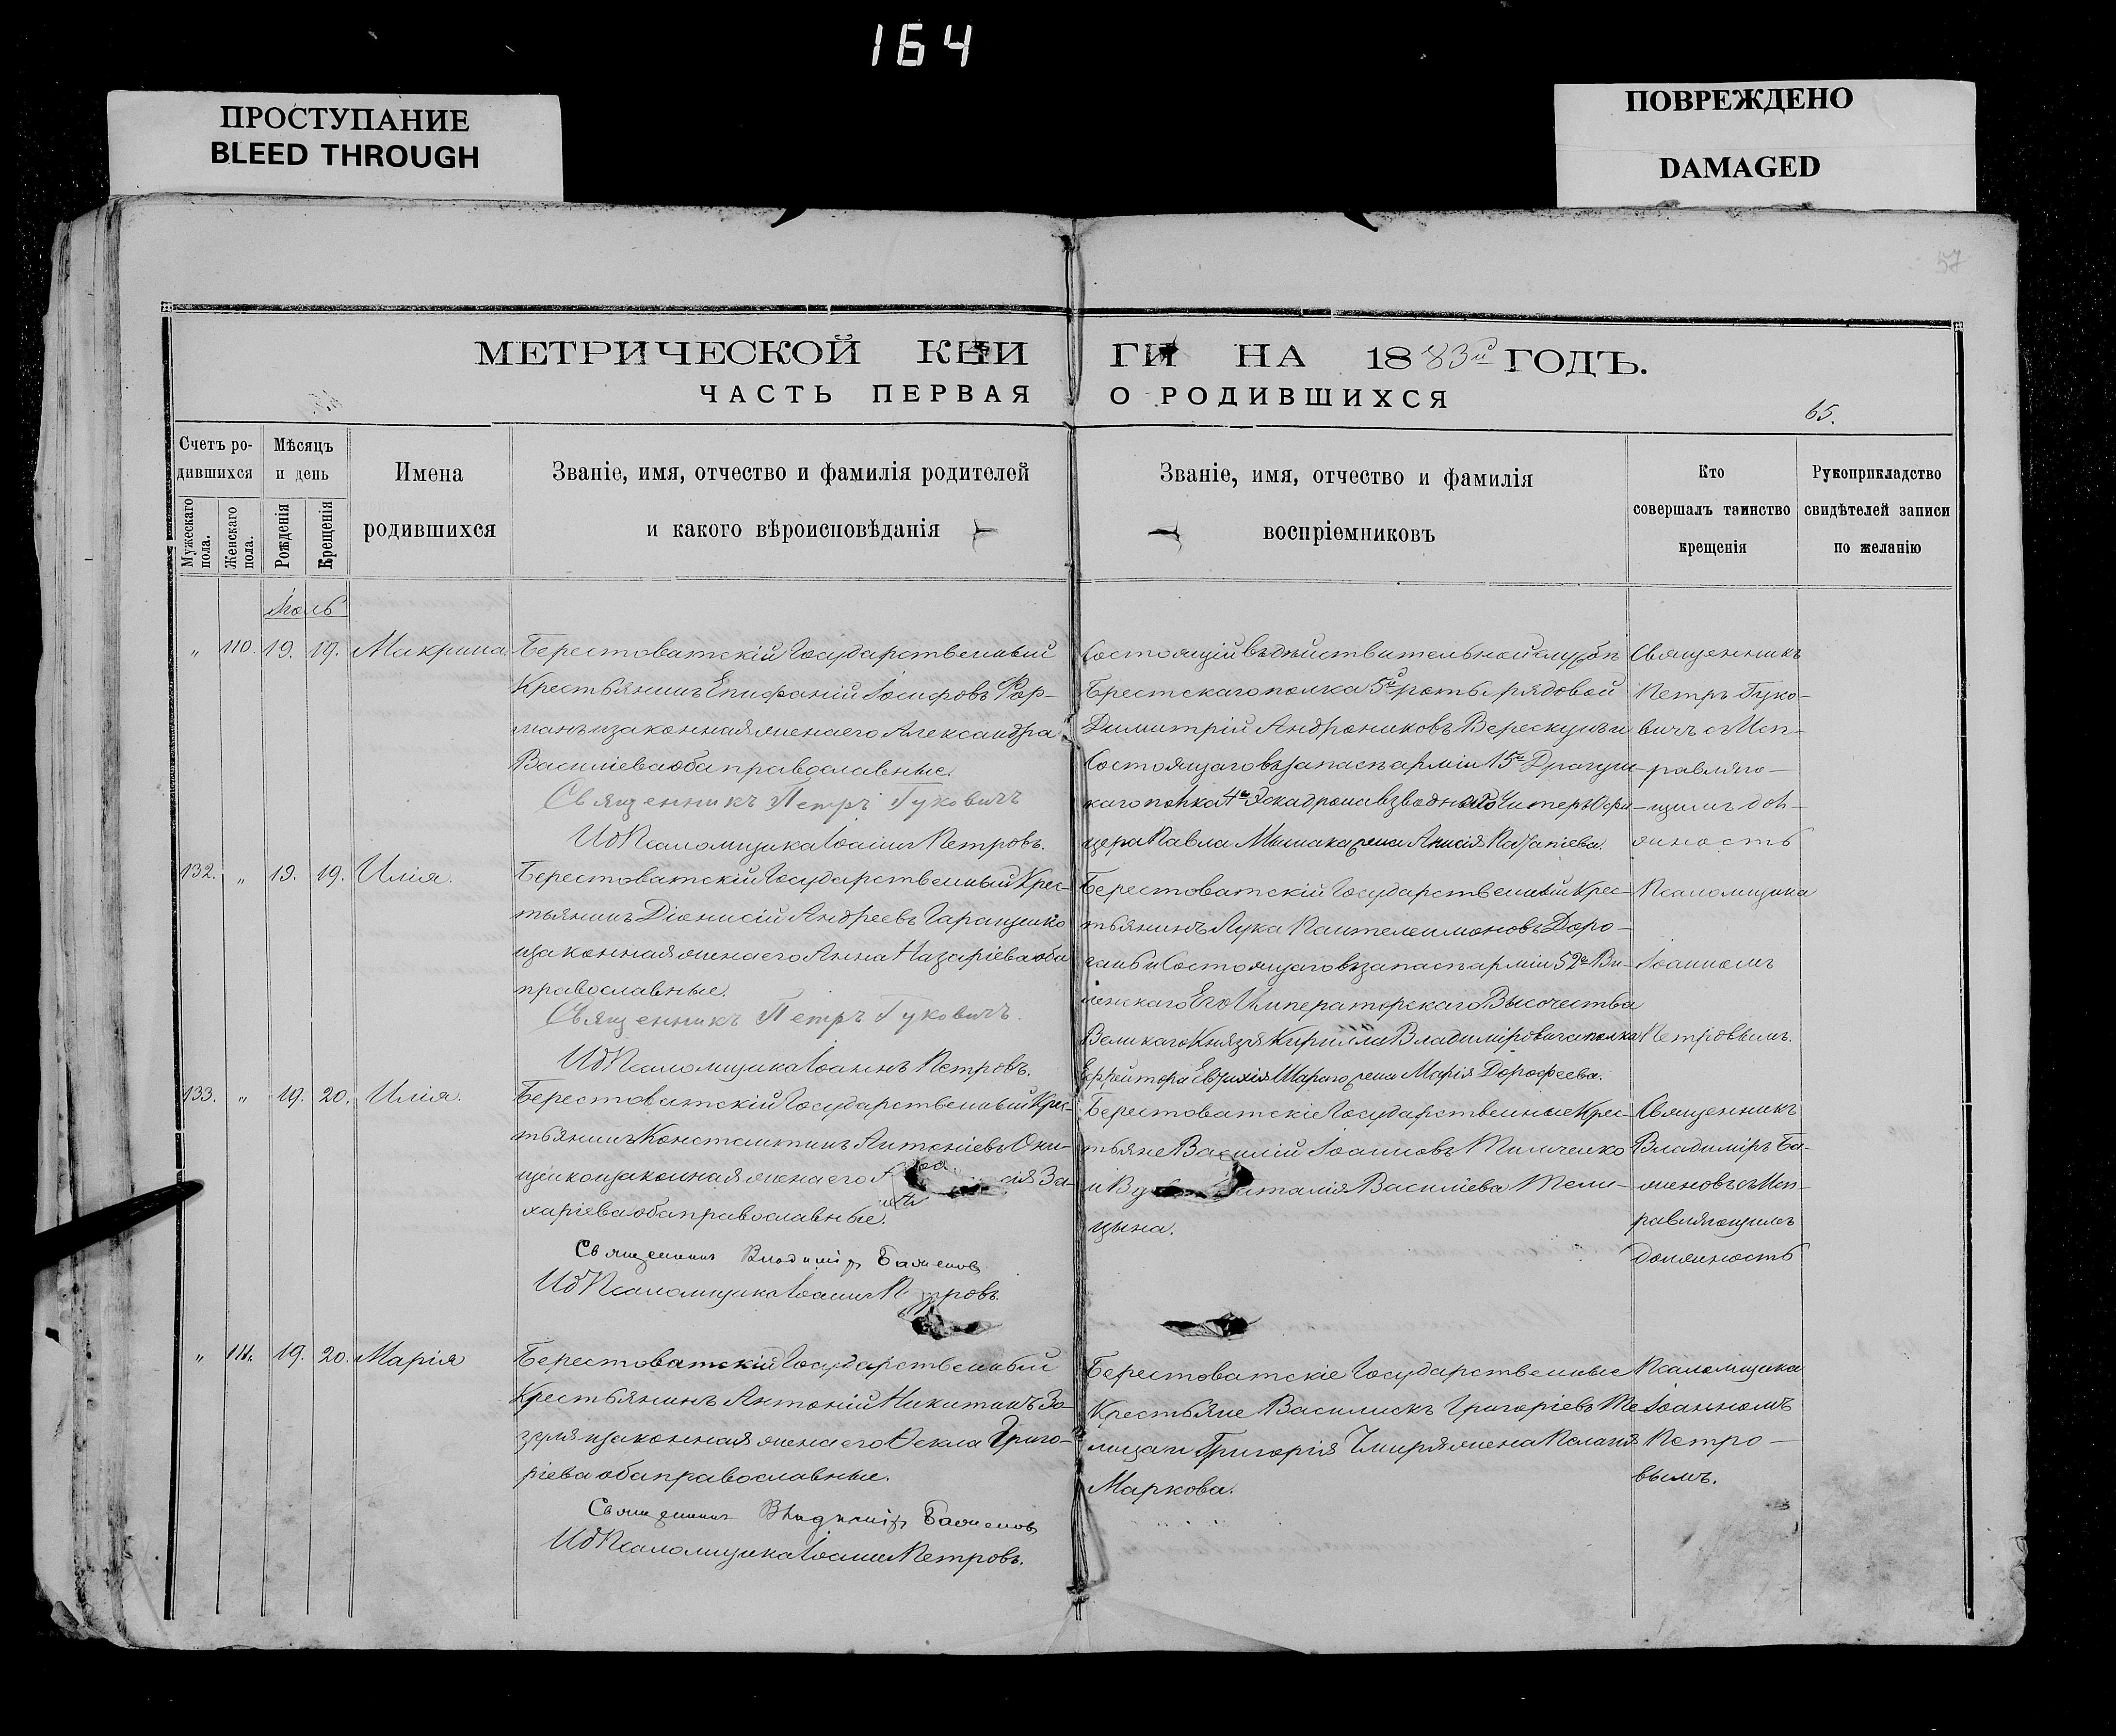 164
ПРОСТУПАНИЕ
BLEED THROUGH
ПОВРЕЖДЕНО
DAMAGED
57
МЕТРИЧЕСКОЙ КНИГИ НА 1883й ГОДЪ.
ЧАСТЬ ПЕРВАЯ О РОДИВШИХСЯ
65.
Счетъ ро-
дившихся
Мужескаго пола.
Женскаго пола.
Мѣсяцъ
и день
Рожденія
Крещенія
Имена
родившихся
Званіе, имя, отчество и фамилія родителей
и какого вѣроисповѣданія
Званіе, имя, отчество и фамилія
воспріемниковъ
Кто
совершалъ таинство
крещенія
Рукоприкладство
свидѣтелей записи
по желанію
Іюль
" 110. 19. 19. Макрина.
Берестоватскій Государственный
Крестьянинъ Епифаній Іосифовъ Фор-
манъ и законная жена его Александра
Василіева оба православные.
Священникъ Петръ Гуковичъ
ИД Псаломщика Іоаннъ Петровъ.
Состоящій въ дѣйствительной службѣ
Брестскаго полка 5й роты рядовой
Димитрій Андрониковъ
Состоящаго въ запасѣ арміи 15го Драгун-
скаго полка 4го Эскадрона взводнаго Унтеръ Офи-
цера Павла жена Анисія
Священникъ
Петръ Гуко-
вичъ с Исп-
равляю-
щимъ дол-
жность
132. " 19. 19. Илія.
Берестоватскій Государственный Крес-
тьянинъ Діонисій Андреевъ Гаращенко
и законная жена его Анна Назаріева оба
православные.
Священникъ Петръ Гуковичъ.
ИД Псаломщика Іоаннъ Петровъ.
Берестоватскій Государственный Крес-
тьянинъ Лука Пантелеимоновъ Доро-
ганъ и Состоящаго въ запасѣ арміи 52го Ви-
ленскаго Его Императорскаго Высочества
Великаго Князя Кирилла Владиміровича полка
Ефрейтора жена Марія Дорофеева.
Псаломщика
Іоанномъ
Петровымъ.
133. " 19. 20. Илія.
Берестоватскій Государственный Крес-
тьянинъ Константинъ Антоніевъ Они-
щенко и законная жена его За-
харіева оба православные.
Священникъ Владиміръ Баженовъ
ИД Псаломщика Іоаннъ Петровъ.
Берестоватскіе Государственные Крес-
тьяне Василій Іоанновъ Тимченко
и Наталія Василіева Тели-
цына.
Священникъ
Владиміръ Ба-
женовъ с Исп-
равляющимъ
должность
" 111. 19. 20. Марія
Берестоватскій Государственный
Крестьянинъ Антоній Никитинъ Зо-
зуля и законная жена его Ѳекла Григо-
ріева оба православные.
Священникъ Владиміръ Баженовъ
ИД Псаломщика Іоаннъ Петровъ.
Берестоватскіе Государственные
Крестьяне Василискъ Григоріевъ Те-
лица и Григорія Чмиря жена Пелагія
Маркова.
Псаломщика
Іоанномъ
Петро-
вымъ.